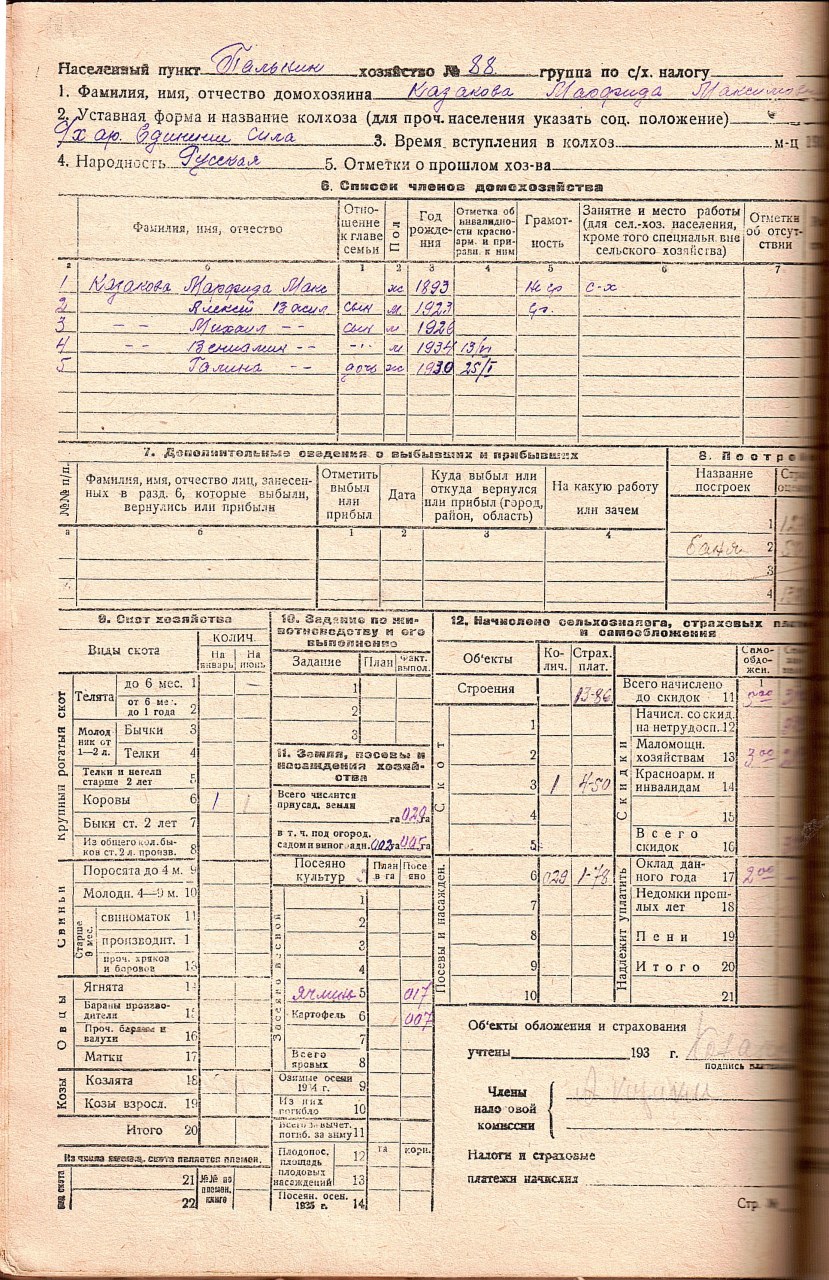 Населенный пункт Палькин хозяйство № 88. группа по с/х. налогу
1. Фамилия, имя, отчество домохозяина Казакова Марфида Максимовн
2. Уставная форма и название колхоза (для проч. населения указать соц. положение)
С/х ар. Единении Сила 3. Время вступления в колхоз м-ц
4. Народность Русская 5. Отметки о прошлом хоз-ва
6. Список членов домохозяйства
Фамилия, имя, отчество Отношение к главе семьи Пол Год рождения Отметка об инвалидности красноарм. и приравн. к ним Грамотность Занятие и место работы (для сел.-хоз. населения, кроме того специальн. вне сельского хозяйства) Отметки об отсутствии
а б 1 2 3 4 5 6 7
1 Казакова Марфида Макс ж 1893 Негр с-х
2 Алексей Васил сын м 1923 Гр.
3 -- Михаил -- сын м 1926
4 -- Вениамин -- -- м 1934 13/VI
5 Галина -- дочь ж 1930 25/I
7. Дополнительные сведения о выбывших и прибывших 8. Постро
№№ п/п. Фамилия, имя, отчество лиц, занесенных в разд. 6, которые выбыли, вернулись или прибыли Отметить выбыл или прибыл Дата Куда выбыл или откуда вернулся или прибыл (город, район, область) На какую работу или зачем Название построек
а б 1 2 3 4
1
баня 2
3
4
9. Скот хозяйства
Виды скота КОЛИЧ.
На январь На июнь
Крупный рогатый скот
Телята до 6 мес. 1 —
от 6 мес. до 1 года 2
Молодник от 1—2 л. Бычки 3
Телки 4
Телки и нетели старше 2 лет 5
Коровы 6 1 1
Быки ст. 2 лет 7
Из общего кол. быков ст. 2 л. произв. 8
Свиньи
Поросята до 4 м. 9
Молодн. 4—9 м. 10
Старше 9 мес. свиноматок 11
производит. 1
проч. хряков и боровов 13
Овцы
Ягнята 14
Бараны производителя 15
Проч. бараны и валухи 16
Матки 17
Козы
Козлята 18
Козы взросл. 19
Итого 20
Из числа имеющ. скота является племен.
21 №№ по племен. книге
22
10. Задание по животноводству и его выполнение
Задание План Факт. выпол.
1
2
3
11. Земля, посевы и насаждения хозяйства
Всего числится приусад. земли га 029 га
в т. ч. под огород. садом и виноградн. 002 га 005 га
Посеяно культур План в га Посеяно
Засеяно весной
1
2
3
4
Ячмень 5 017
Картофель 6 007
7
Всего яровых 8
Озимые осени 1934 г. 9
Из них погибло 10
Всего за вычет. погиб. за зиму 11
Плодонос. площадь плодовых насаждений 12 га корн.
13
Посеян. осен. 1935 г. 14
12. Начислено сельхозналога, страховых плат и самообложения
Объекты Колич. Страх. плат.
Строения 13-86
Скот
1
2
3 1 4-50
4
5
Посевы и насажден.
6 029 1-78
7
8
9
10
Самообложен.
1
Всего начислено до скидок 11
Скидки
Начисл. со скид. на нетрудосп. 12
Маломощн. хозяйствам 13 3 00
Красноарм. и инвалидам 14
15
Всего скидок 16
Надлежит уплатить
Оклад данного года 17 2 00
Недоимки прошлых лет 18
Пени 19
Итого 20
21
Объекты обложения и страхования
учтены 193 г. Казак
подпись
Члены налоговой комиссии
Налоги и страховые
платежи начислил
Стр. №